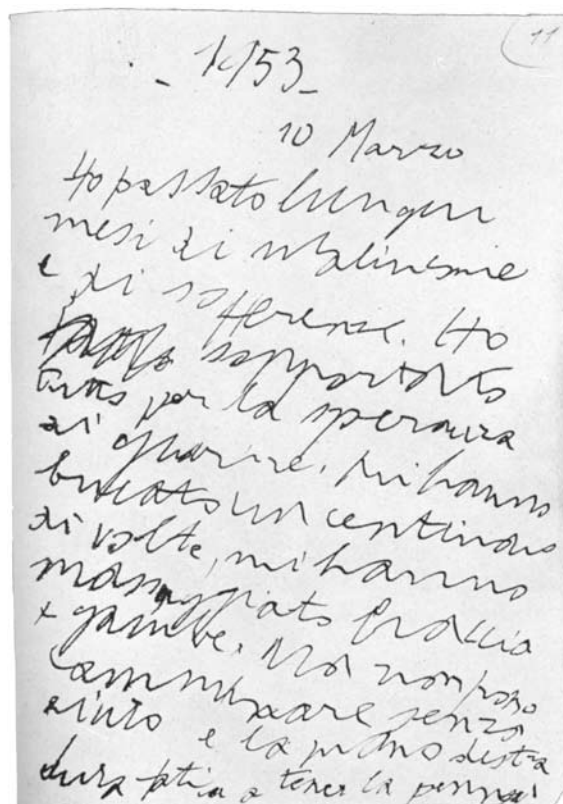 11
- 1953 -
10 Marzo
Ho passato lunghi
mesi di malinconie
e di sofferenze. Ho
sopportato
tutto per la speranza
di guarire. Mi hanno
bucato un centinaio
di volte, mi hanno
massaggiato braccia
e gambe. Ma non posso
camminare senza
aiuto e la mano destra
dura fatica a tener la penna